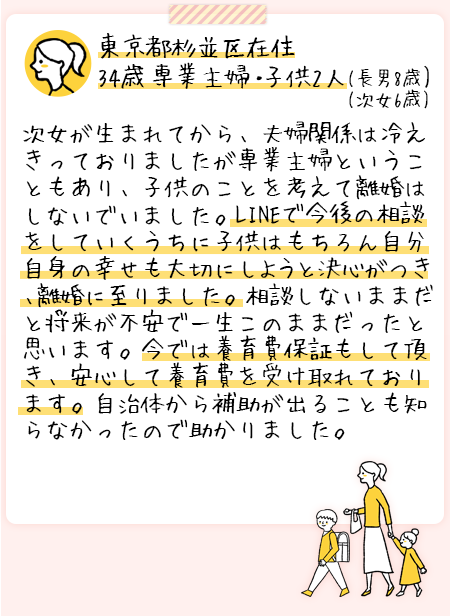 東京都杉並区在住
34歳 専業主婦・子供2人(長男8歳)
(次女6歳)
次女が生まれてから、夫婦関係は冷え
きっておりましたが専業主婦というこ
ともあり、子供のことを考えて離婚は
しないでいました。LINEで今後の相談
をしていくうちに子供はもちろん自分
自身の幸せも大切にしようと決心がつき
、離婚に至りました。相談しないままだ
と将来が不安で一生このままだったと
思います。今では養育費保証もして頂
き、安心して養育費を受け取れており
ます。自治体から補助が出ることも知
らなかったので助かりました。